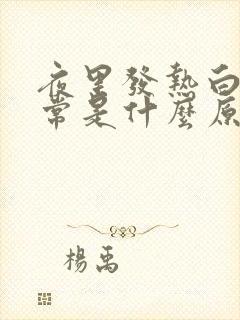 夜里發熱白
常是什麼原
楊禹